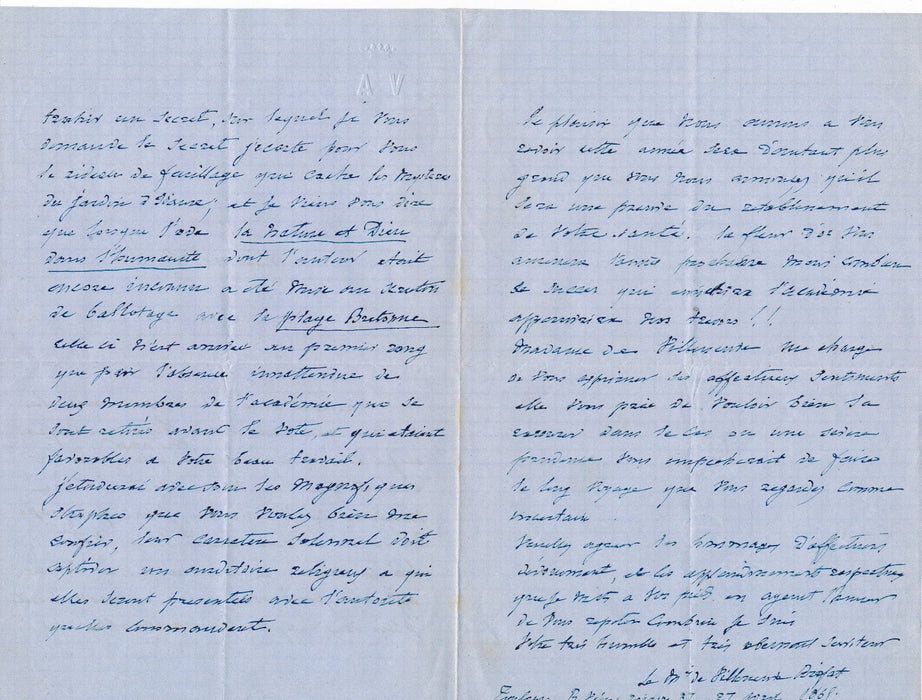 V A
trahir un secret, sur lequel je vous
demande le secret j'ecarte pour vous
le rideau de feuillage qui cache les mysteres
du jardin d'isaure, et je viens vous dire
que lorsque l'ode la nature et Dieu
dans l'humanité dont l'auteur etait
encore inconnu a été mise au scrutin
de ballotage avec la plage Bretonne
celle ci n'est arrivée au premier rang
que par l'absence inattendue de
deux membres de l'académie qui se
sont retirés avant le vote, et qui etaient
favorables a votre beau travail.
j'etudierai avec soin les magnifiques
strophes que vous voulez bien me
confier, leur caractere solennel doit
captiver un auditoire religieux a qui
elles seront presentées avec l'autorité
qu'elles commandent.
le plaisir que nous aurons a vous
revoir cette année sera d'autant plus
grand que vous nous annoncez qu'il
sera une preuve du retablissement
de votre santé. la fleur d'or vous
amenera l'année prochaine mais combien
le succès qui l'académie
nos !!
Madame de Villeneuve me charge
de vous exprimer ses affectueux sentiments
elle vous prie de vouloir bien la
dans le cas ou une severe
prudence vous empecherait de faire
le long voyage que vous regardez comme
incertain.
Veuillez agreer les hommages d'affectueux
devouement, et les respectueux
que je mets a vos pieds en ayant l'honneur
de vous repeter combien je suis
Votre très humble et très obeissant serviteur
Le Mis de Villeneuve
Toulouse